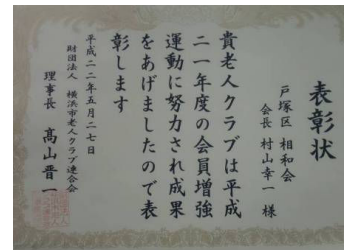 表彰状
戸塚区 相和会
会長 村山幸一 様
貴老人クラブは平成
二一年度の会員増強
運動に努力され成果
をあげましたので表
彰します
平成二二年五月二七日
財団法人 横浜市老人クラブ連合会
理事長 高山晋一